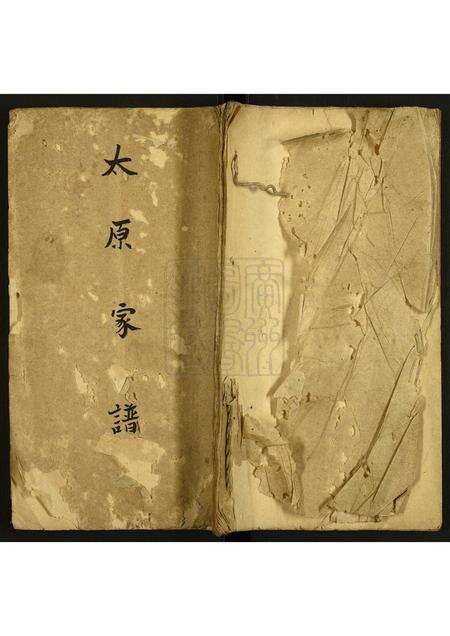 太原家譜